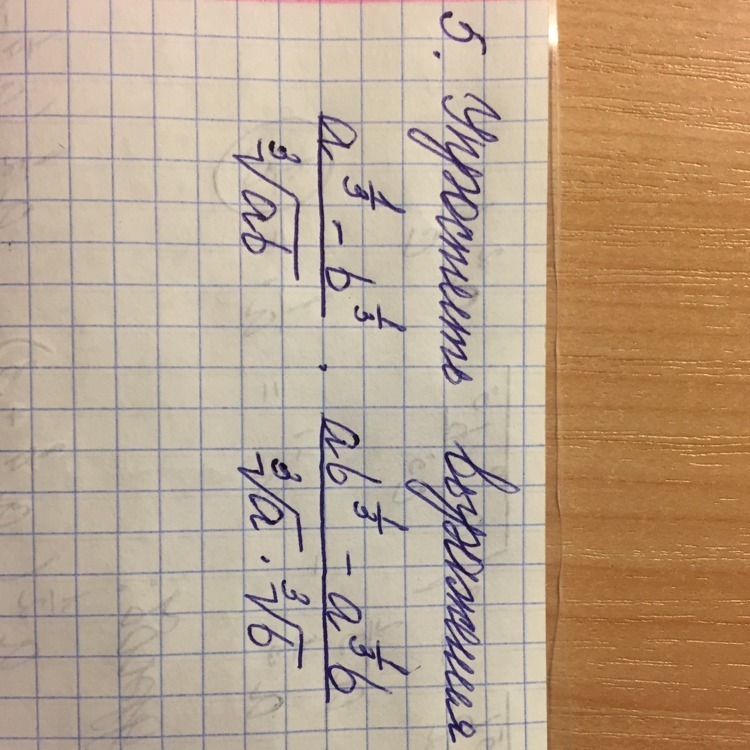 5. Упростить выражения
a^{\frac{1}{3}} - b^{\frac{1}{3}} / \sqrt[3]{ab} · ab^{\frac{1}{3}} - a^{\frac{1}{3}}b / \sqrt[3]{a} · \sqrt[3]{b}